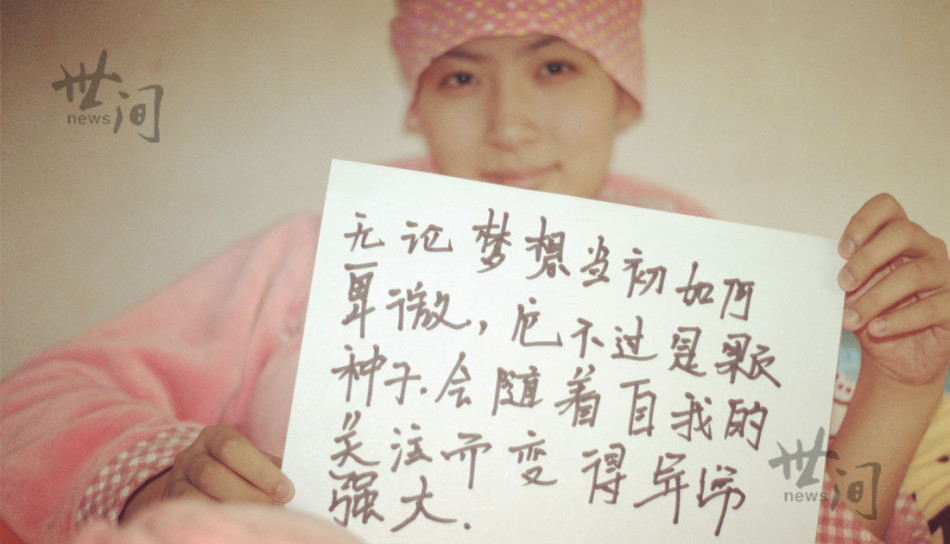 世间
news
无论梦想当初如何
卑微，它不过是颗
种子.会随着自我的
关注而变得异常
强大.
世间
news